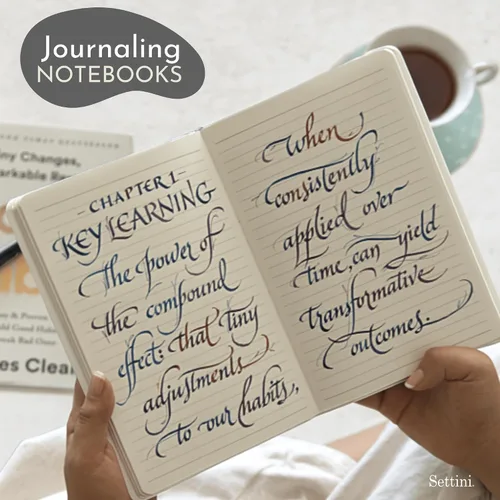 Journaling
NOTEBOOKS
ny Changes,
arkable Re
es Clea
- CHAPTER 1 -
KEY LEARNING
The power of
the compound
effect: that tiny
adjustments
to our habits,
When
consistently
applied over
time, can yield
transformative
outcomes.
Settini